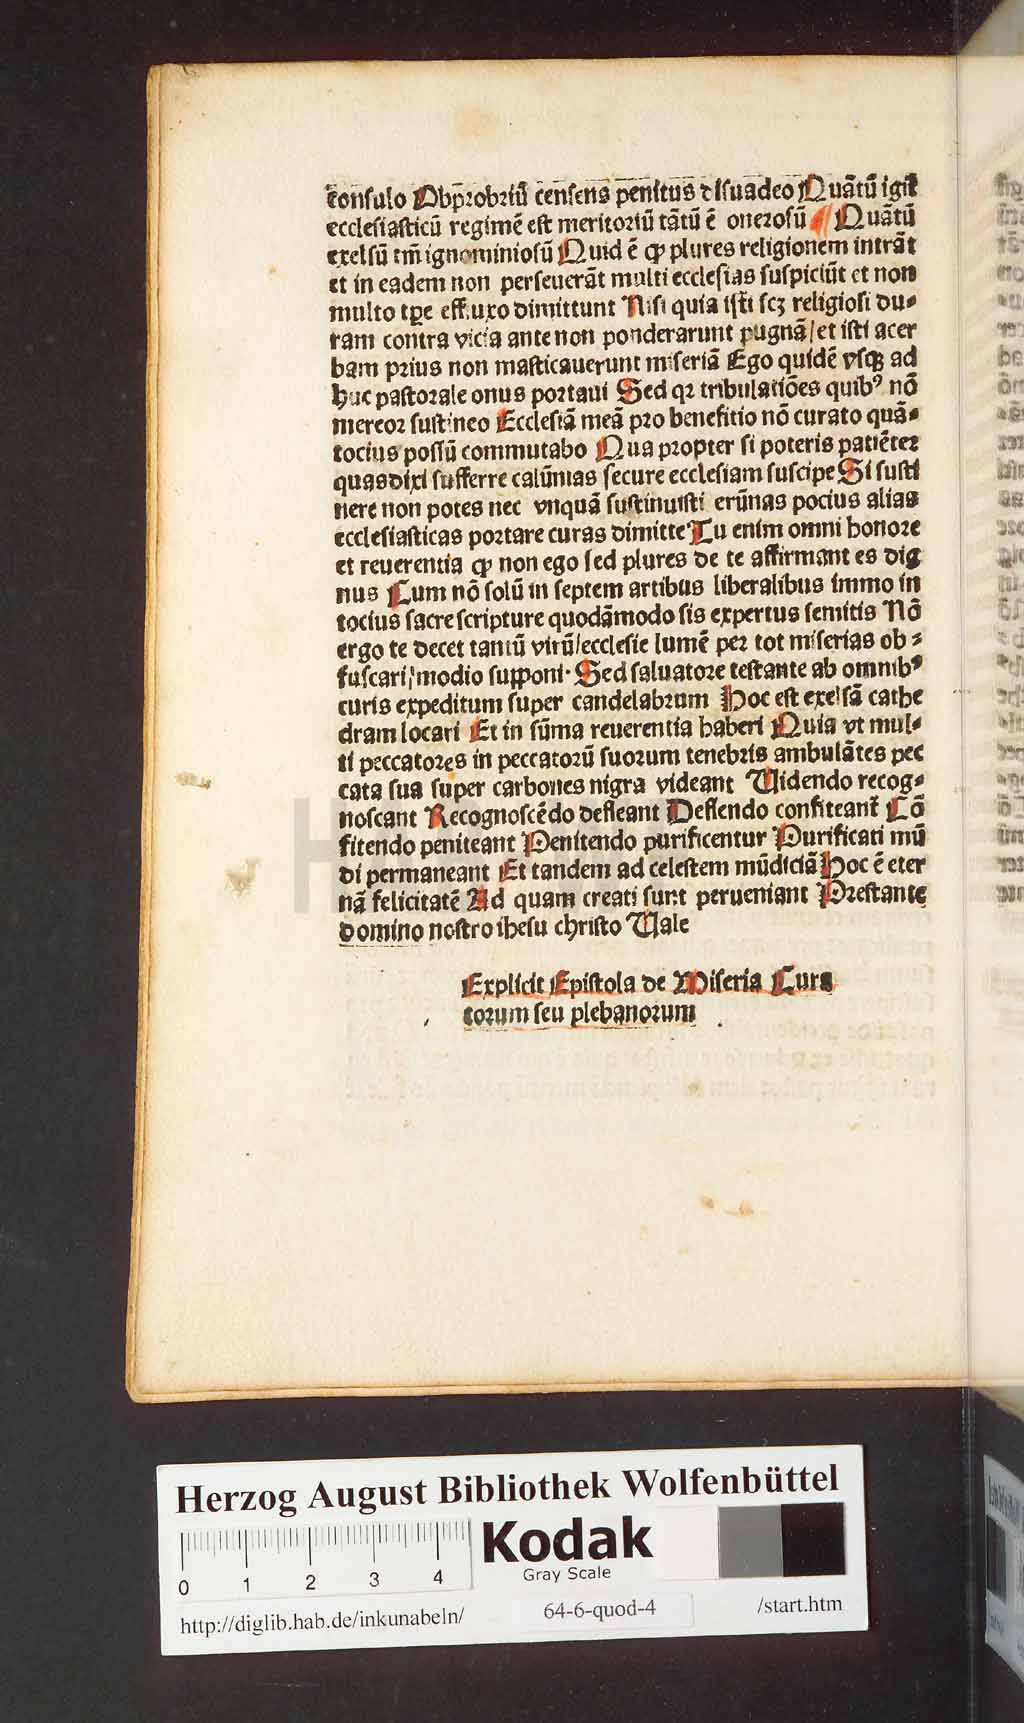 consulo Obp̄robriū censens penitus disuadeo Quātū igit̃
ecclesiasticū regimē est meritoriū tātū ē onerosū Quātū
exelsū tm̄ ignominiosū Quid ē ꝙ plures religionem intrāt
et in eadem non perseuerāt multi ecclesias suspiciūt et non
multo tꝑe effluxo dimittunt Nisi quia isti scꝫ religiosi du⸗
ram contra vicia ante non ponderarunt pugnā/et isti acer
bam prius non masticauerunt miseriā Ego quidē vsqꝫ ad
huc pastorale onus portaui Sed qꝛ tribulatiōes quibꝰ nō
mereor sustineo Ecclesiā meā pro benefitio nō curato quā⸗
tocius possū commutabo Qua propter si poteris patiēter
quas dixi sufferre calūnias secure ecclesiam suscipe Si susti
nere non potes nec vnquā sustinuisti erūnas pocius alias
ecclesiasticas portare curas dimitte Tu enim omni honore
et reuerentia ꝙ non ego sed plures de te affirmant es dig
nus Cum nō solū in septem artibus liberalibus immo in
tocius sacre scripture quodāmodo sis expertus semitis Nō
ergo te decet tantū virū/ecclesie lumē per tot miserias ob⸗
fuscari/modio supponi· Sed saluatore testante ab omnibꝰ
curis expeditum super candelabrum Hoc est exelsā cathe
dram locari Et in sūma reuerentia haberi Quia vt mul⸗
ti peccatores in peccatorū suorum tenebris ambulātes pec
cata sua super carbones nigra videant Uidendo recog⸗
noscant Recognoscēdo defleant Deflendo confiteant̃ Cō
fitendo peniteant Penitendo purificentur Purificati mū
di permaneant Et tandem ad celestem mūdiciā Hoc ē eter
nā felicitatē Ad quam creati sunt perueniant Prestante
domino nostro ihesu christo Uale
Explicit Epistola de Miseria Cura
torum seu plebanorum
Herzog August Bibliothek Wolfenbüttel
Kodak
Gray Scale
0 1 2 3 4
http://diglib.hab.de/inkunabeln/ 64-6-quod-4 /start.htm